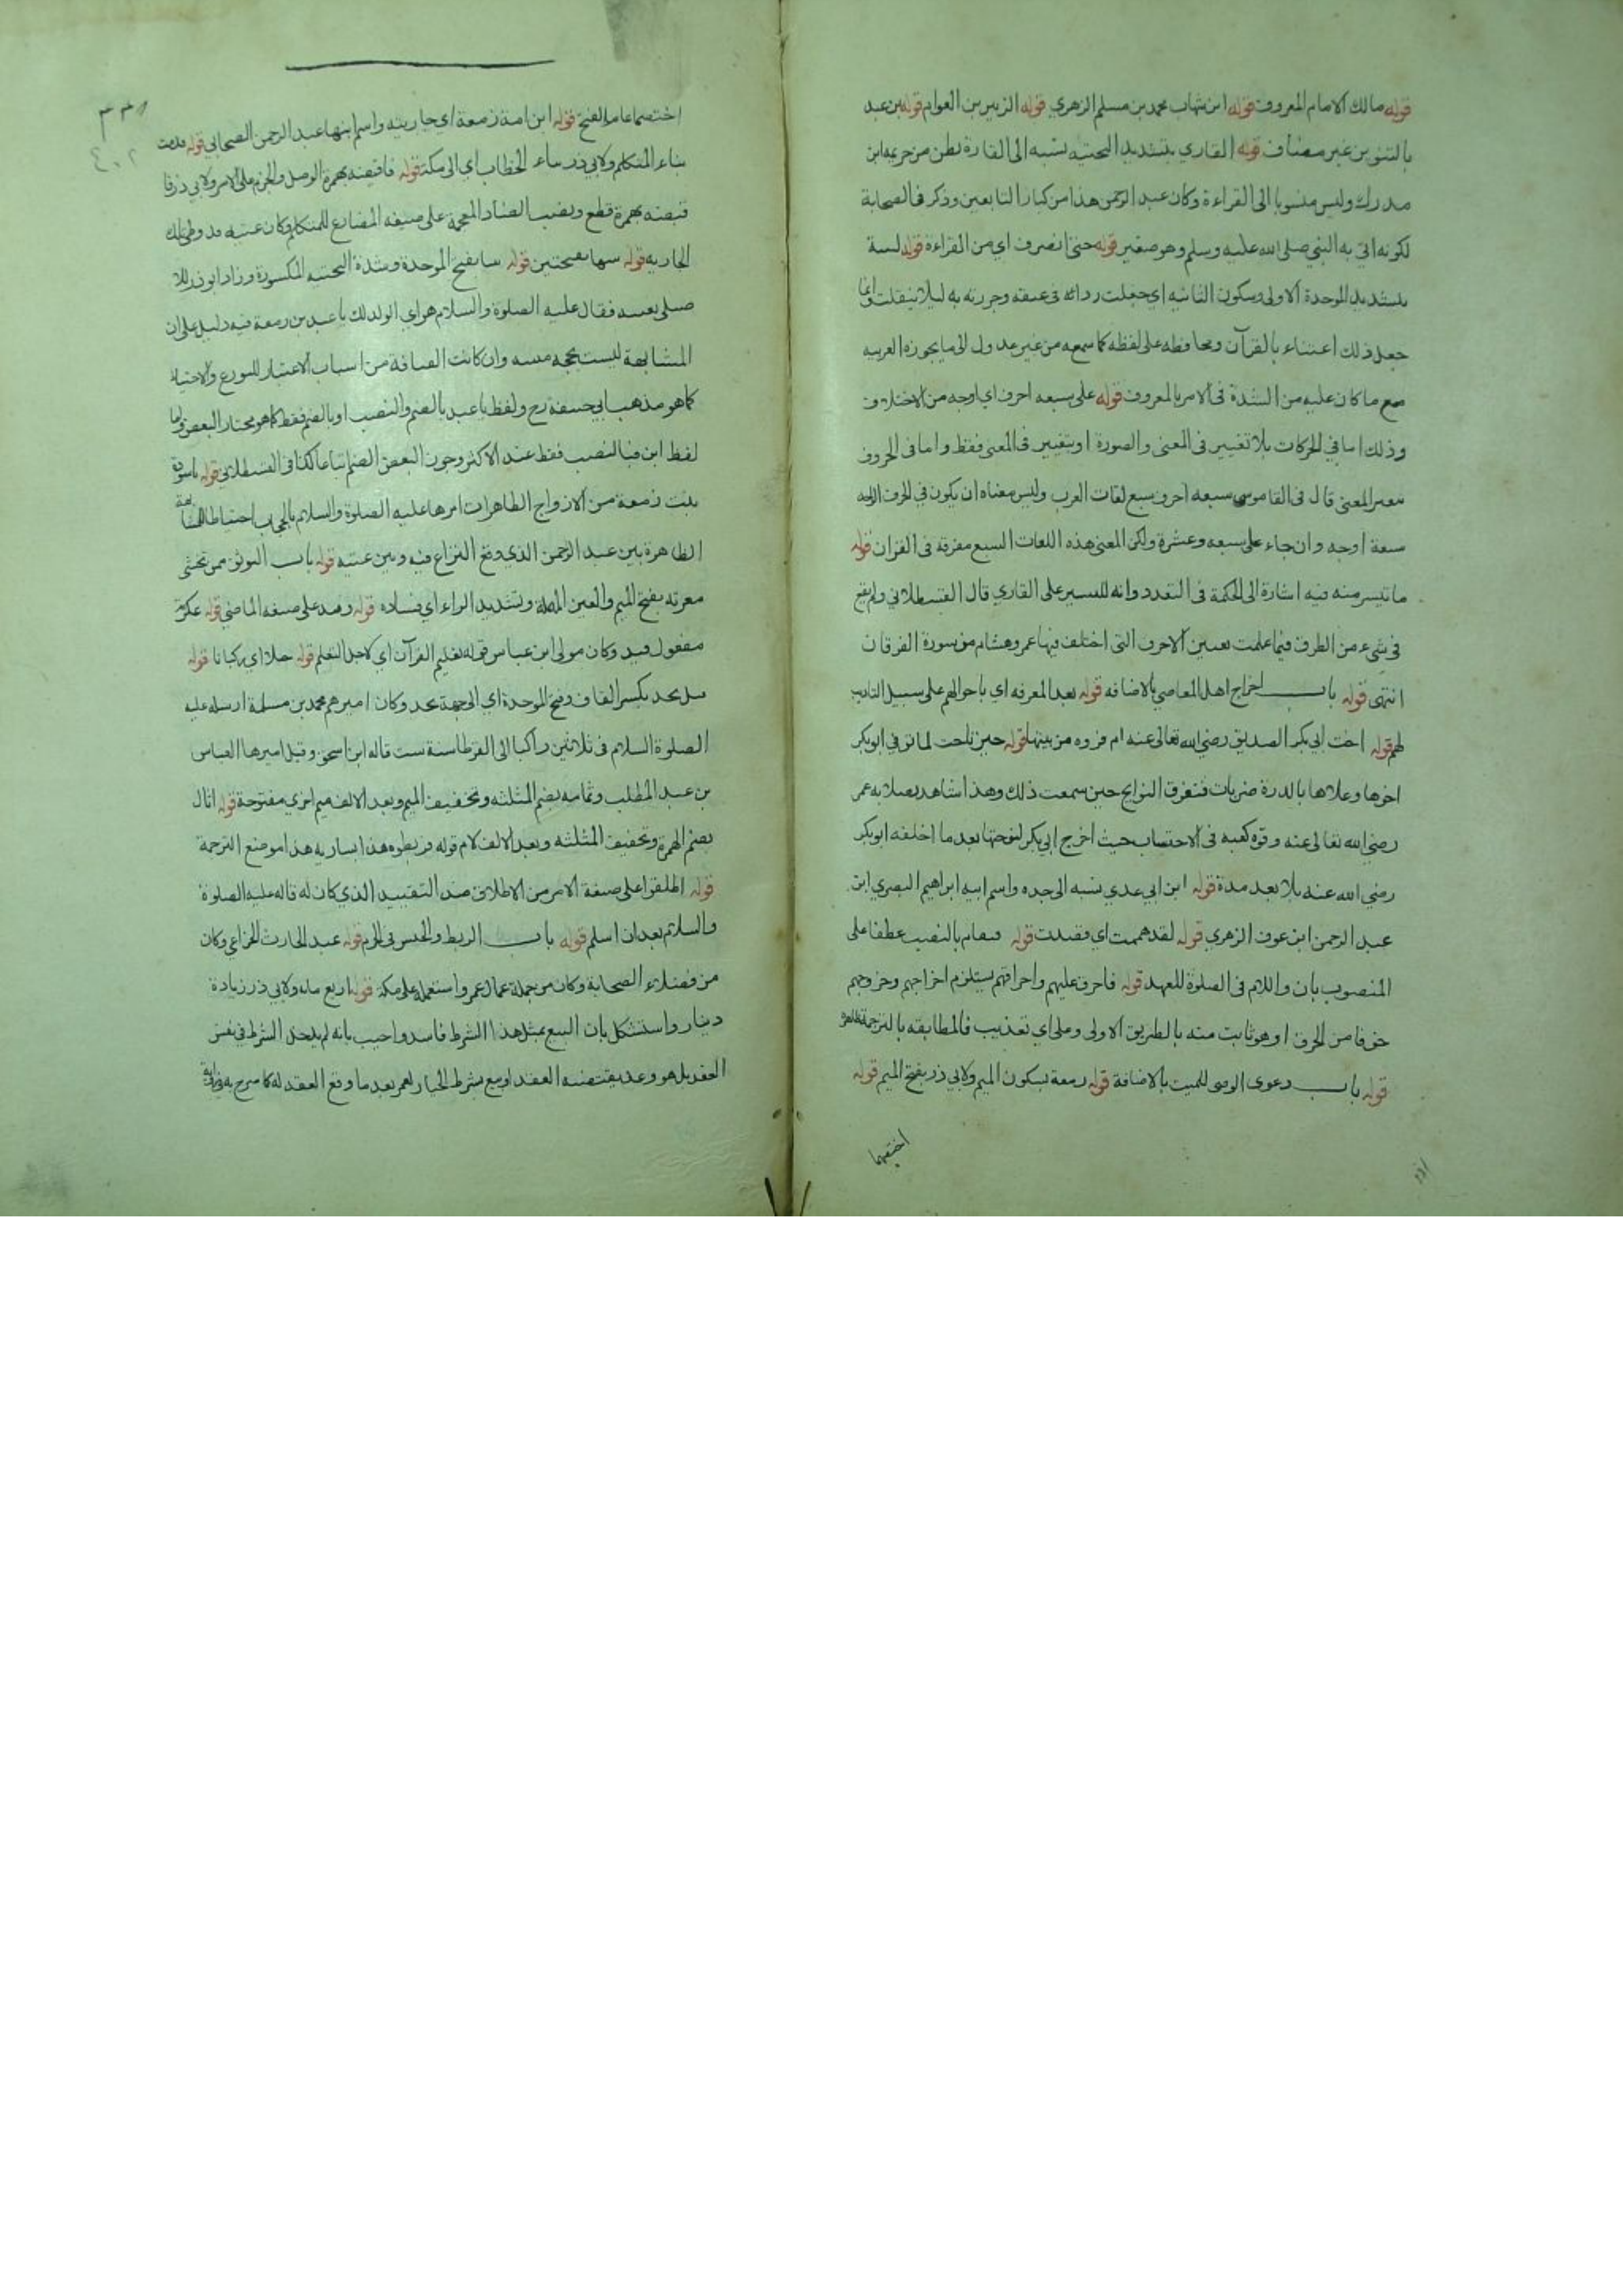 قوله مالك الامام المعروف قوله ابن شهاب محمد بن مسلم الزهري قوله الزبير بن العوام قوله بن عبد
بالتنوين غير مضاف قوله القاري بتشديد التحتيه نسبه الى القارة بطن من خزيمه ابن
مدركه وليس منسوبا الى القراءة وكان عبد الرحمن هذا من كبار التابعين وذكر في الصحابة
لكونه اتي به النبي صلى الله عليه وسلم وهو صغير قوله حتى انصرف اي من القراءة قوله لببته
بتشديد الموحدة الاولى وسكون الثانيه اي جعلت ردائه في عنقه وجررته به ليلا ينفلت وانما
جعل ذلك اعتناء بالقرآن ومحافظه على لفظه كما سمعه من غير عدول الى ما يجوزه العربيه
مع ما كان عليه من الشدة في الامر بالمعروف قوله على سبعه احرف اي اوجه من الاختلاف
وذلك اما في الحركات بلا تغيير في المعنى والصورة او بتغيير في المعنى فقط واما في الحروف
بتغير المعنى قال في القاموس سبعه احرف سبع لغات العرب وليس معناه ان يكون في الحرف الواحد
سبعة اوجه وان جاء على سبعه وعشرة ولكن المعنى هذه اللغات السبع مفرقه في القران قوله
ما تيسر منه فيه اشارة الى الحكمة في التعدد وانه للتيسير على القاري قال القسطلاني ولم يقع
في شيء من الطرق فيما علمت تعيين الاحرف التي اختلف فيها عمر وهشام من سورة الفرقان
انتهى قوله باب اخراج اهل المعاصي بالاضافه قوله بعد المعرفه اي باحوالهم على سبيل التاديب
لهم قوله اخت ابي بكر الصديق رضي الله تعالى عنه ام فروه من بيتها قوله حين ناحت لما توفي ابو بكر
اخوها وعلاها بالدرة ضربات فتفرق النوايح حين سمعت ذلك وهذا شاهد بصلابه عمر
رضي الله تعالى عنه وقوه كعبه في الاحتساب حيث اخرج ابي بكر لنوحتها بعد ما اخلفه ابو بكر
رضي الله عنه بلا بعد مدة قوله ابن ابي عدي نسبه الى جده واسم ابيه ابراهيم البصري ابن
عبد الرحمن ابن عوف الزهري قوله لقد هممت اي قصدت قوله فتقام بالنصب عطفا على
المنصوب بان واللام في الصلوة للعهد قوله فاحرق عليهم واحراقهم يستلزم اخراجهم وخروجهم
خوفا من الحرق او هو ثابت منه بالطريق الاولى وعلى اي تعذيب فالمطابقه بالترجمة ظاهر
قوله باب دعوى الوصى للميت بالاضافة قوله زمعة بسكون الميم ولابي ذر بفتح الميم قوله
اختصما
٣٣١
٤٠٢
اختصما عام الفتح قوله ابن امة زمعة اي جاريته واسم ابنها عبد الرحمن الصحابي قوله قدمت
بتاء المتكلم ولابي ذر بتاء الخطاب اي الى مكة قوله فاقبضه بهمزة الوصل والجزم على الامر ولابي ذر فا
قبضه بهمزة قطع ونصب الضاد المعجمة على صيغه المضارع للمتكلم وكان عتبه قد وطئ تلك
الجاريه قوله شبها بفتحتين قوله بينا بفتح الموحدة وشدة التحتيه المكسورة وزاد ابو ذر للا
صلى بعتبه فقال عليه الصلوة والسلام هو اي الولد لك يا عبد بن زمعة فيه دليل على ان
المشابهة ليست بحجه مبينه وان كانت القيافة من اسباب الاعتبار للتورع والاحتياط
كما هو مذهب ابي حنيفة رح ولفظ يا عبد بالضم والنصب او بالضم فقط كما هو مختار البعض واما
لفظ ابن فبالنصب فقط عند الاكثر وجوز البعض الضم اتباعا كذا في القسطلاني قوله يا سودة
بنت زمعة من الازواج الطاهرات امرها عليه الصلوة والسلام بالحجاب احتياطا للمشابهة
الظاهرة بين عبد الرحمن الذي وقع النزاع فيه وبين عتبه قوله باب التوثق ممن تخشى
معرته بفتح الميم والعين المهملة وتشديد الراء اي فساده قوله وقيد على صيغه الماضي قوله عكرمة
مفعول قيد وكان مولى ابن عباس قوله تعليم القرآن اي لاجل التعلم قوله خيلا اي ركبانا قوله
قبل نجد بكسر القاف وفتح الموحدة اي الى جهة نجد وكان اميرهم محمد بن مسلمة ارسله عليه
الصلوة السلام في ثلاثين راكبا الى القرطا سنة ست قاله ابن اسحق وقيل اميرها العباس
بن عبد المطلب وثمامه بضم المثلثه وتخفيف الميم وبعد الالف ميم اخرى مفتوحة قوله اثال
بضم الهمزة وتخفيف المثلثه وبعد الالف لام قوله فربطوه هذا بساريه هذا موضع الترجمة
قوله اطلقوا على صيغة الامر من الاطلاق ضد التقييد الذي كان له قاله عليه الصلوة
والسلام بعد ان اسلم قوله باب الربط والحبس في الحرم قوله عبد الحارث الخزاعي وكان
من فضلاء الصحابة وكان من جملة عمال عمر واستعمله على مكة قوله اربع مائه ولابي ذر زيادة
دينار واستشكل بان البيع بمثل هذا الشرط فاسد واجيب بانه لم يدخل الشرط في نفس
العقد بل هو وعد يقتضيه العقد او بيع بشرط الخيار لعمر بعد ما وقع العقد له كما صرح به